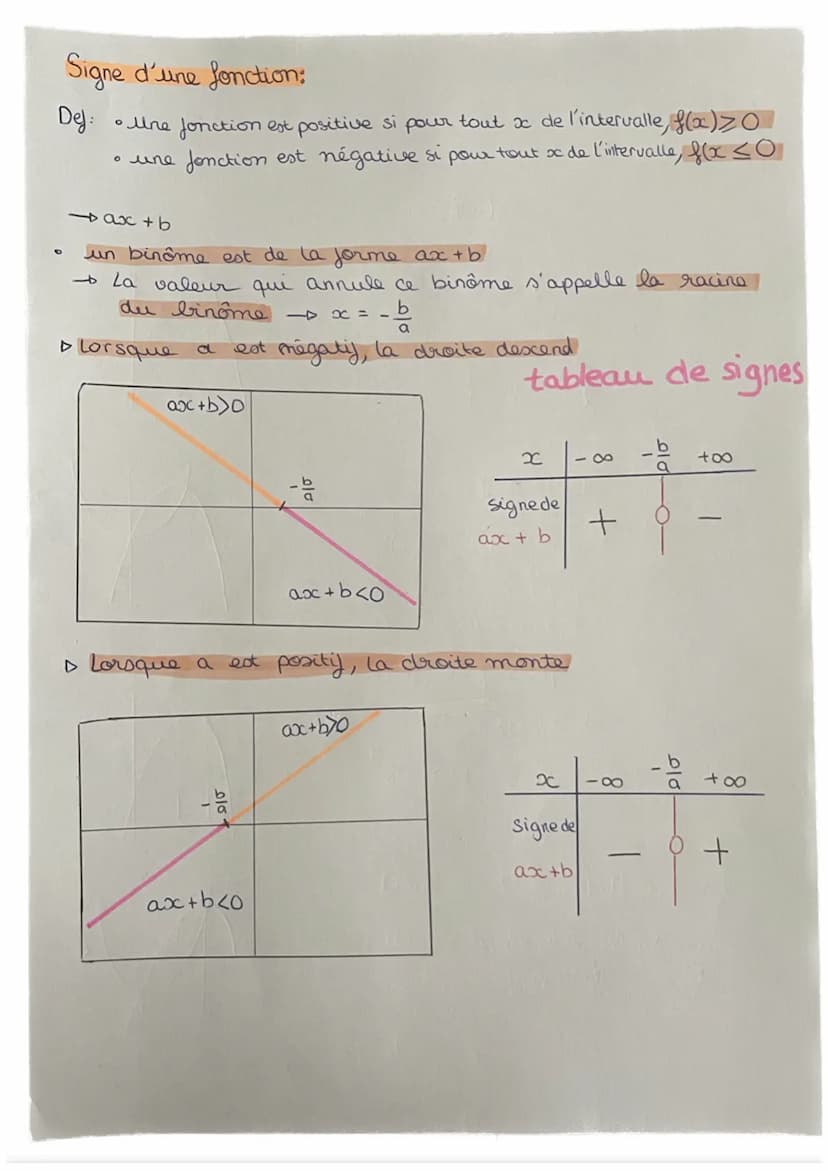 Signe d'une fonction:
Def: • Une fonction est positive si pour tout x de l'intervalle, f(x) ≥ 0
• une fonction est négative si pour tout x de l'intervalle, f(x ≤ 0
→ ax + b
• un binôme est de la forme ax + b
→ La valeur qui annule ce binôme s'appelle la racine
du binôme → x = - b/a
▷ Lorsque a est négatif, la droite descend
tableau de signes
ax + b > 0
- b/a
ax + b < 0
x | -∞ - b/a +∞
signe de
ax + b | + 0 -
▷ Lorsque a est positif, la droite monte
ax + b > 0
- b/a
ax + b < 0
x | -∞ - b/a +∞
Signe de
ax + b | - 0 +